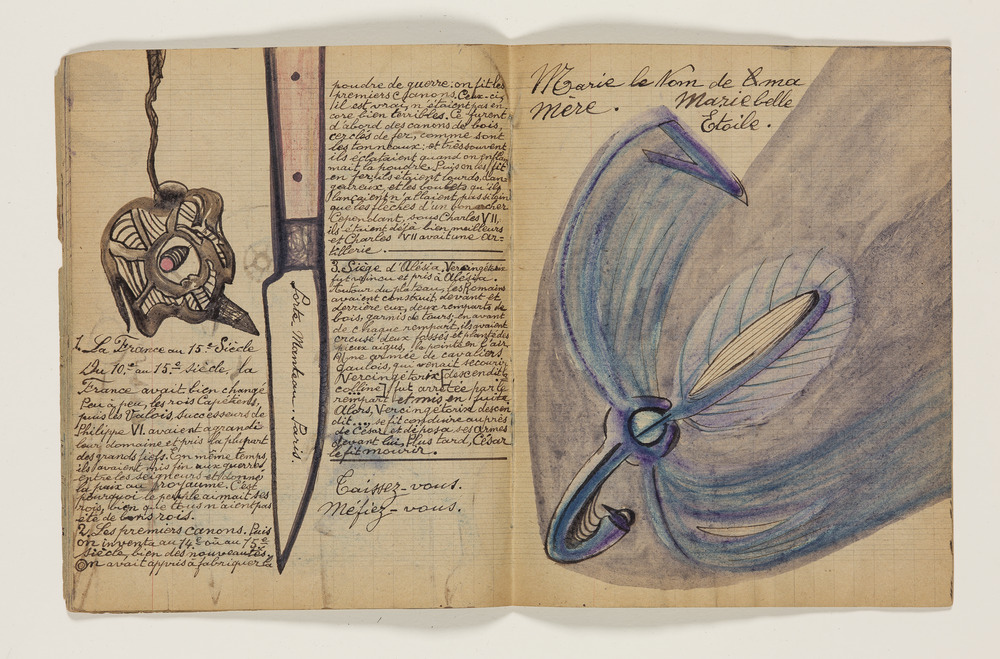 1. La France au 15.e Siècle
Du 10.e au 15.e siècle, la
France avait bien changé
Peu à peu, les rois Capétiens,
puis les Valois, successeurs de
Philippe VI. avaient agrandi
leur domaine et pris la plupart
des grands fiefs. En même temps,
ils avaient mis fin aux guerres
entre les seigneurs et donné
la paix au proyaume. C'est
pourquoi le peuple aimait ses
rois, bien que tous n'aient pas
été de bons rois.
2. Les premiers canons. Puis
on inventa au 14.e où au 15.e
siècle, bien des nouveautés.
On avait appris à fabriquer la
Porte-Manteau. Paris.
poudre de guerre: on fit les
premiers canons. Ceux-ci,
il est vrai, n'étaient pas en
core bien terribles. Ce furent
d'abord des canons de bois,
cerclés de fer, comme sont
les tonneaux: et très souvent
ils éclataient quand on enflam
mait la poudre. Puis on les fit
en fer; ils étaient lourds, dan
gereux, et les boulets qu'ils
lançaient n'allaient pas si loin
que les flèches d'un bon archer
Cependant, sous Charles VII,
ils étaient déjà bien meilleurs
et Charles VII avait une ar-
tillerie.
3. Siège d'Alésia. Vercingétorix
fut vaincu et pris à Alésia.
Autour du plateau, les Romains
avaient construit, devant et
derrière eux, deux remparts de
bois, garnis de tours; en avant
de chaque rempart, ils avaient
creusé deux fossés et planté des
pieux aigus, la pointe en l'air.
Une armée de cavaliers
gaulois, qui venait secourir
Vercingétorix descendit
colline fut arrêtée par le
rempart et mis en fuite
Alors, Vercingétorix descen
dit...., se fit conduire auprès
de César et déposa ses armes
devant lui, Plus tard, César
le fit mourir.
Taissez-vous.
Méfiez-vous.
Marie le Nom de & ma
mere. Mariebelle
Etoile.